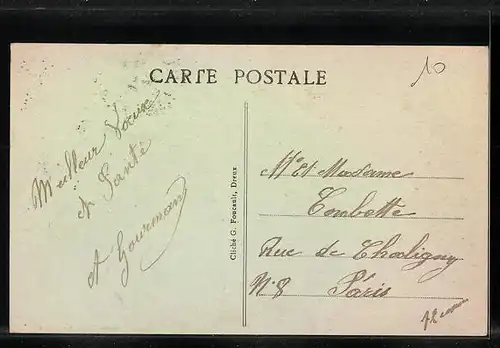 CARTE POSTALE
10
Meilleur Voeux
et Santé
A Gourmand
Cliché G. Foucault, Dreux
Mr Et Madame
Combette
Rue de Chaligny
N° 8 Paris